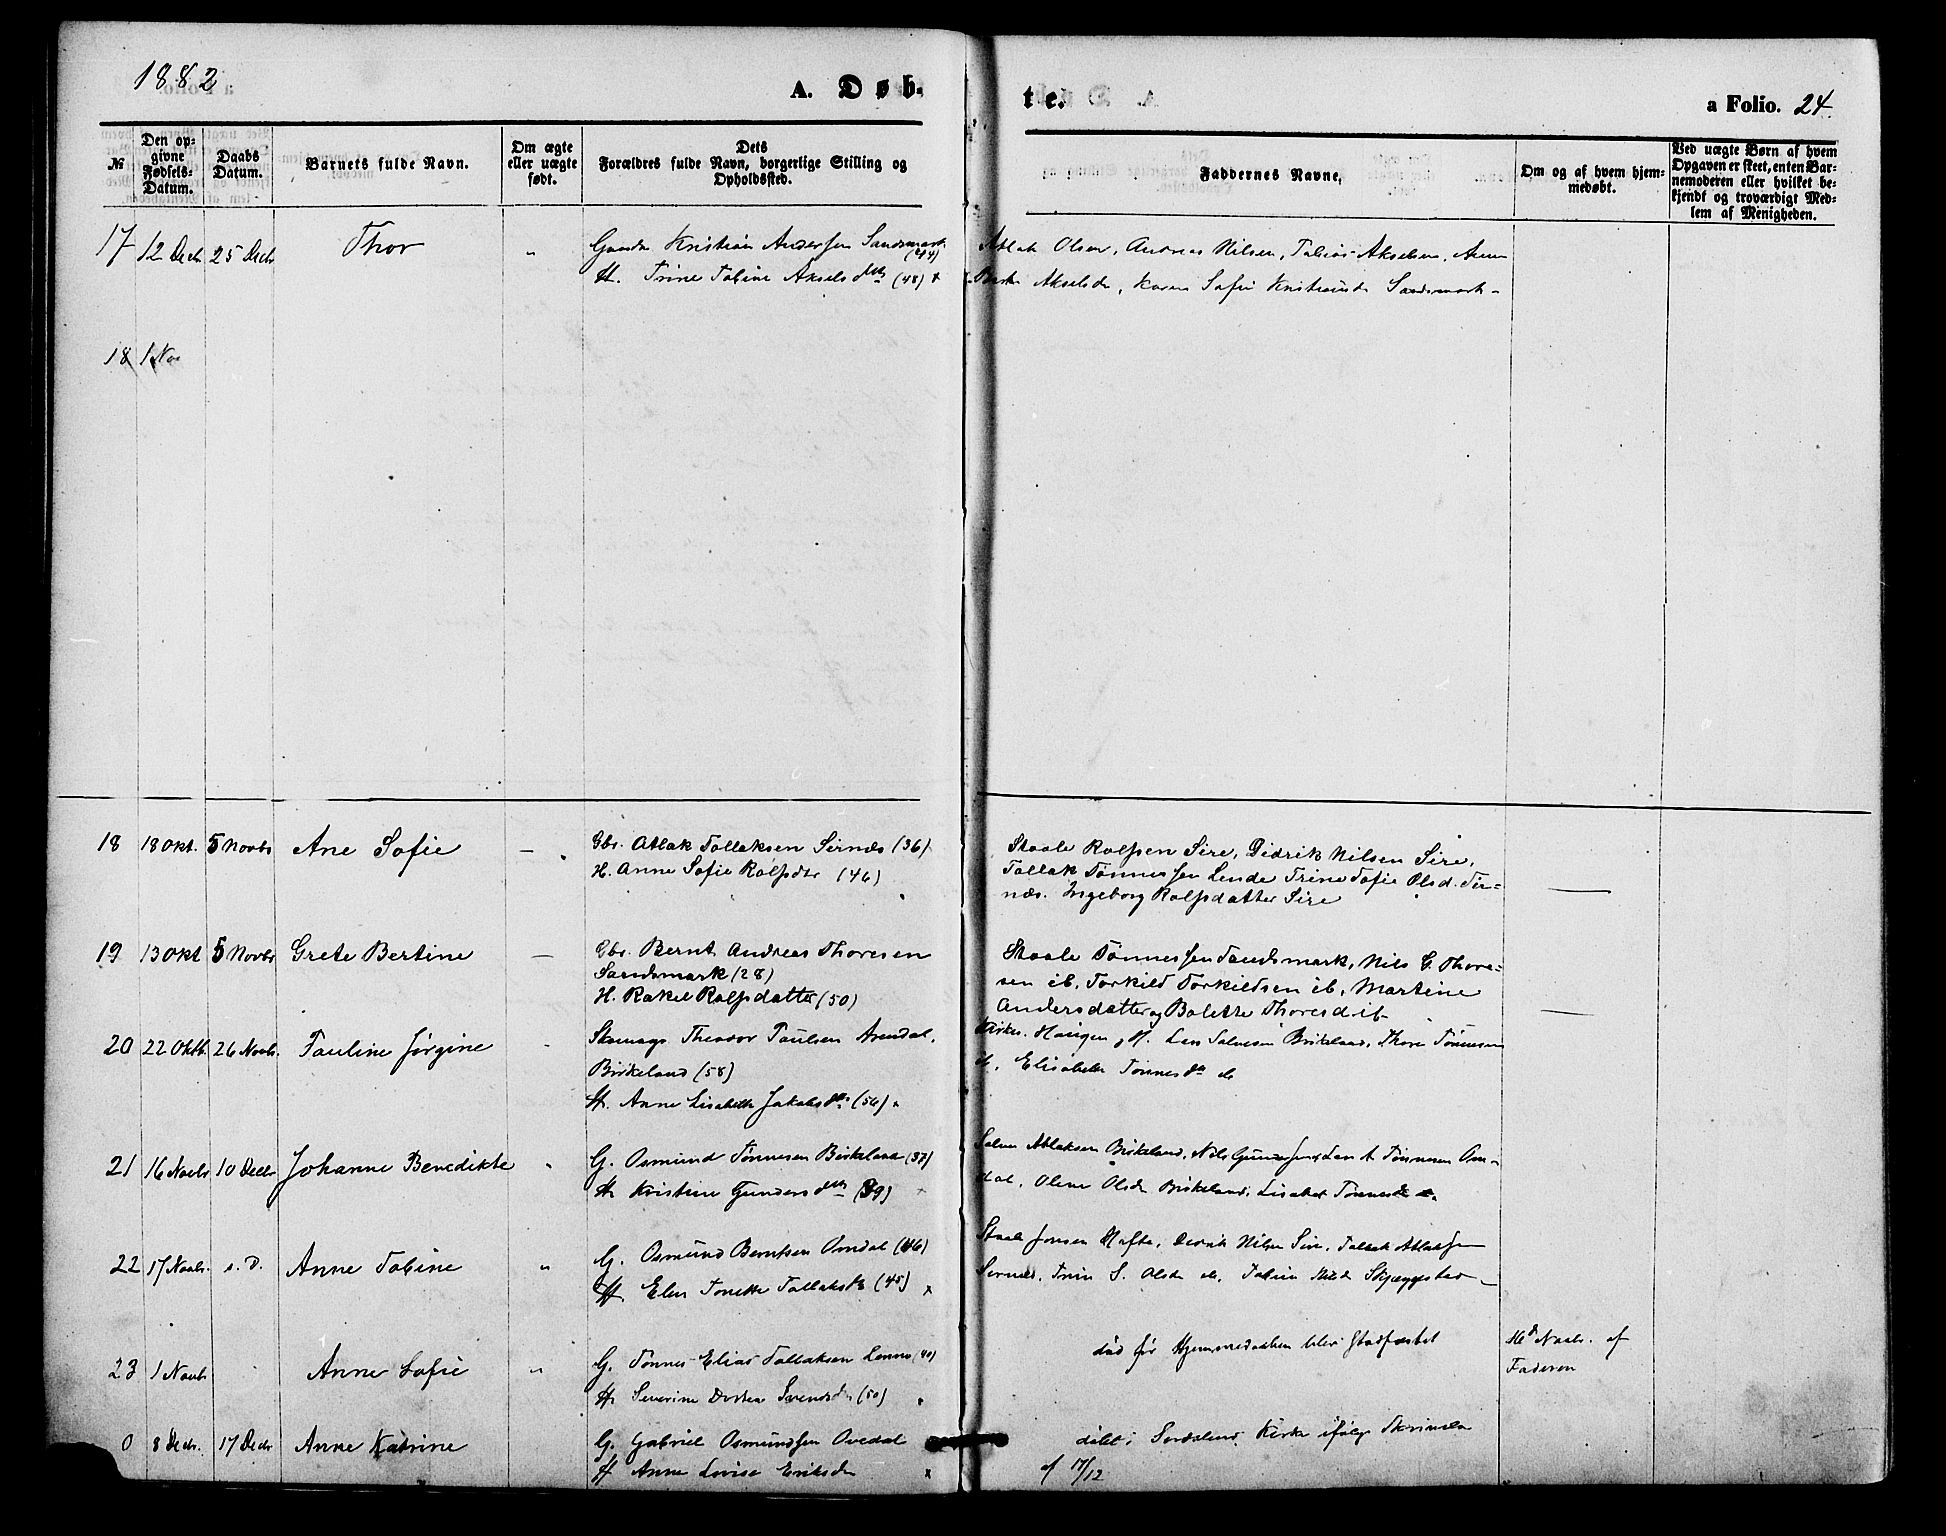 1882
A. Døb-
te.
a Folio. 24.
№
Den op-
givne
Fødsels-
Datum.
Daabs
Datum.
Barnets fulde Navn.
Om ægte
eller uægte
født.
Dets
Forældres fulde Navn, borgerlige Stilling og
Opholdssted.
Faddernes Navne,
Om og af hvem hjem-
medøbt.
Ved uægte Børn af hvem
Opgaven er skeet, enten Bar-
nemoderen eller hvilket be-
kjendt og troværdigt Med-
lem af Menigheden.
17 12 Decbr 25 Decbr Thor "
Kristian Andersen Sandsmark
H. Trine Tobine Aksels (48)
Atlak Olsen, Andreas Nilsen, Tobias Akselsen,
Akselsd, Karen Sofie Sandsmark
18 1 Nov
18 18 Okt. 5 Novbr Ane Sofie —
Gbr. Atlak Tollaksen Sirnæs (36)
H. Anne Sofie Rolfsdtr (46)
Staale Rolfsen Sire, Didrik Nilsen Sire,
Tollak Tønnessen Lende Trine Sofie Olsd. Sir-
næs. Ingeborg Rolfsdatter Sire
—
19 13 Okt 5 Novbr Grete Bertine —
Gbr. Bernt Andreas Thoresen
Sandsmark (28)
H. Rakel Rolfsdatter (50)
Staale Tønnessen Sandsmark, Nils G. Thore-
sen ib, Torkild Torkildsen ib, Martine
Andersdatter og Bolette Thoresd ib
—
20 22 Oktb. 26 Novbr. Pauline Jørgine
Theodor Paulsen Arendal,
Birkeland (58)
H. Anne Lisabeth Jakobsd (56)
Haugen, Salvesen Birkeland, Thore Tønnesen
Elisabeth Tønnesd
21 16 Novbr 10 Decbr Johanne Benedikte "
G. Osmund Tønnesen Birkeland (37)
H. Kristine Gunders (39)
Atlaksen Birkeland, Nils Tønnesen Om-
dal, Olene Olsdr Birkeland, Lisabet
22 17 Novbr. s. D. Anne Tobine "
G. Osmund Berntsen Omdal (46)
H. Elen Tonette Tollaksd (45)
Staale Jonsen Hafte, Didrik Nilsen Sire, Tollak Atlaksen
Sirnes, S. Olsdr
23 1 Novbr Anne Sofie "
G. Tønnes Elias Tollaksen (40)
H. Severine Dortea Svendsd (50)
død før Hjemmedaaben blev stadfæstet
Novbr. af
Faderen
0 8 Decbr. 17 Decbr Anne Katrine
G. Gabriel Osmundsen Ovedal
H Anne Lovise Eriksdr
døbt i Kirke ifølge
af 17/12